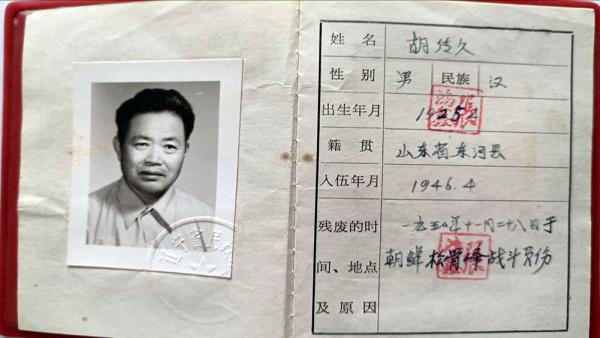 姓名 胡传久
性别 男 民族 汉
出生年月 1925.4
籍贯 山东省东河县
入伍年月 1946.4
残废的时 一九五〇年十一月二十八日于
间、地点 朝鲜松骨峰战斗负伤
及原因